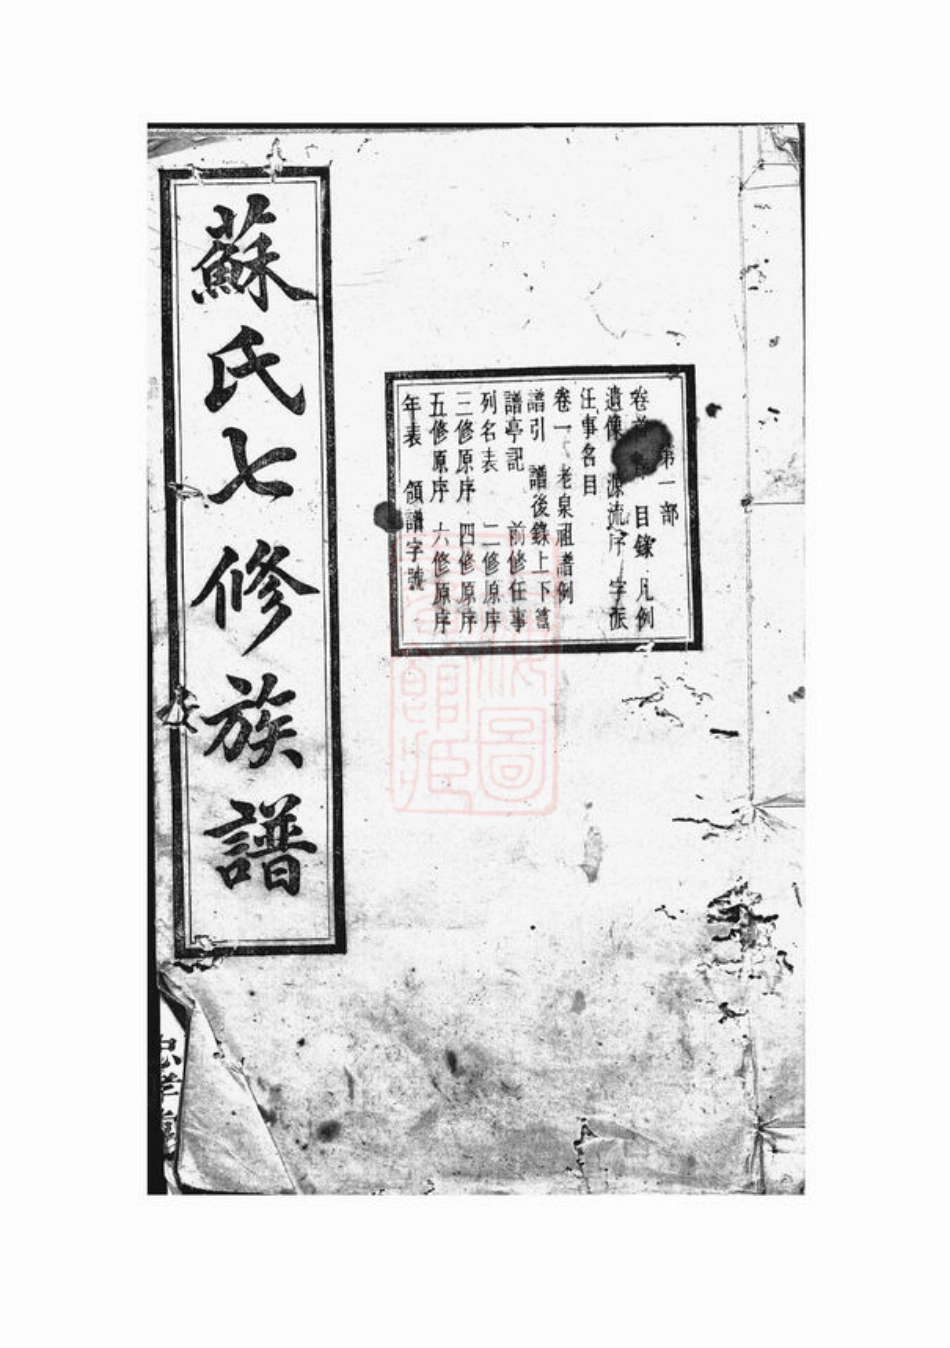 蘇氏七修族譜
第一部
卷首 目錄 凡例
遺像 源流序 字派
任事名目
卷一 老泉祖譜例
譜引 譜後錄上下篇
譜亭記 前修任事
列名表 二修原序
三修原序 四修原序
五修原序 六修原序
年表 領譜字號
忠孝